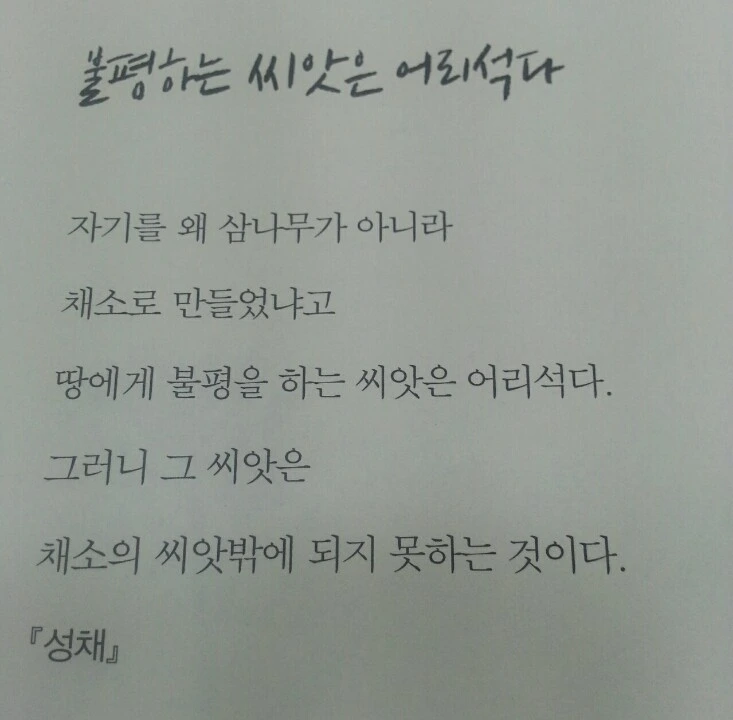 불평하는 씨앗은 어리석다
자기를 왜 삼나무가 아니라
채소로 만들었냐고
땅에게 불평을 하는 씨앗은 어리석다.
그러니 그 씨앗은
채소의 씨앗밖에 되지 못하는 것이다.
『성채』